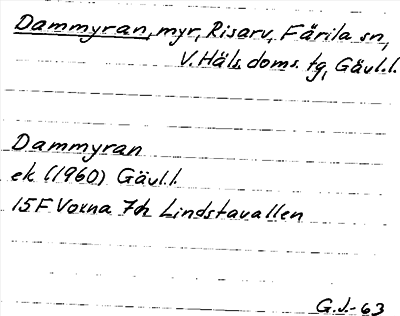 Dammyran, myr, Risarv, Färila sn,
V. Häls. doms. tg, Gävl.l.
Dammyran
ek (1960) Gävl.l.
15F Voxna 7ch Lindstavallen
G.J.-63